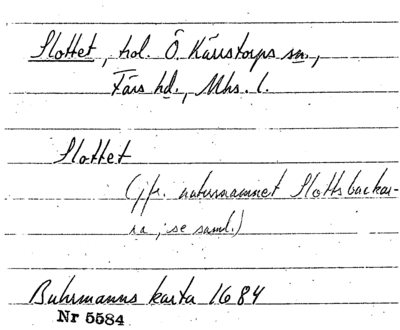 Slottet, hol. Ö. Kärrstorps sn.,
Färs hd., Mhs. l.
Slottet
(jfr. naturnamnet Slottsbackar-
na, se saml.)
Buhrmanns karta 1684
Nr 5584